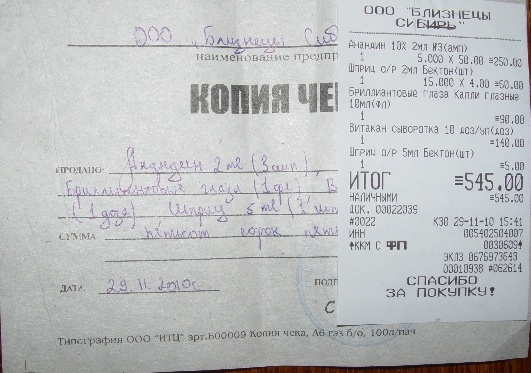 ООО "Близнецы Сиб
наименование предпр
КОПИЯ ЧЕ
ПРОДАНО: Анандин 2 ml (3 амп)
Бриллиантовые глаза (1 фл) В
(1 доза) Шприц 5 ml (1 шт
СУММА пятьсот сорок пять
ДАТА 29.11.2010г.
ПОДП
С
Типография ООО "ИТЦ" арт.Б00009 Копия чека, А6 газ б/о, 100л/пач
ООО "БЛИЗНЕЦЫ
СИБИРЬ"
Анандин 10% 2мл N3(амп)
1 5.000 X 50.00 =250.00
Шприц О/Р 2мл Бектон(шт)
1 15.000 X 4.00 =60.00
Бриллиантовые Глаза Капли глазные
10мл(фл)
1 =90.00
Витакан сыворотка 10 доз/уп(доз)
1 =140.00
Шприц О/Р 5мл Бектон(шт)
1 =5.00
ИТОГ =545.00
НАЛИЧНЫМИ =545.00
ДОК. 00022039
#3022 К30 29-11-10 15:41
ИНН 005402504007
ККМ С ФП 0030609
ЭКЛЗ 0676973643
00010938 #062614
СПАСИБО
ЗА ПОКУПКУ!